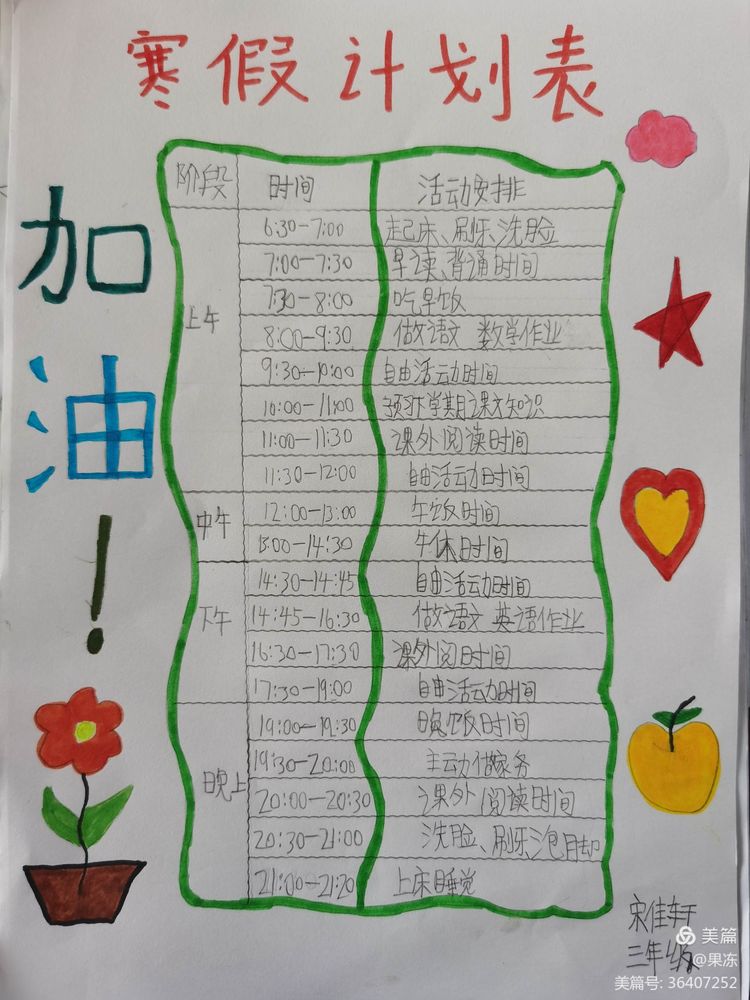 寒假计划表
加油！
阶段 时间 活动安排
上午
6:30—7:00 起床、刷牙、洗脸
7:00—7:30 早读、背诵时间
7:30—8:00 吃早饭
8:00—9:30 做语文 数学作业
9:30—10:00 自由活动时间
10:00—11:00 预习下学期课文知识
11:00—11:30 课外阅读时间
11:30—12:00 自由活动时间
中午
12:00—13:00 午饭时间
13:00—14:30 午休时间
下午
14:30—14:45 自由活动时间
14:45—16:30 做语文 英语作业
16:30—17:30 课外阅时间
17:30—19:00 自由活动时间
晚上
19:00—19:30 晚饭时间
19:30—20:00 主动做家务
20:00—20:30 课外阅读时间
20:30—21:00 洗脸、刷牙泡脚
21:00—21:20 上床睡觉
宋佳轩
三年级
美篇
@果冻
美篇号: 36407252